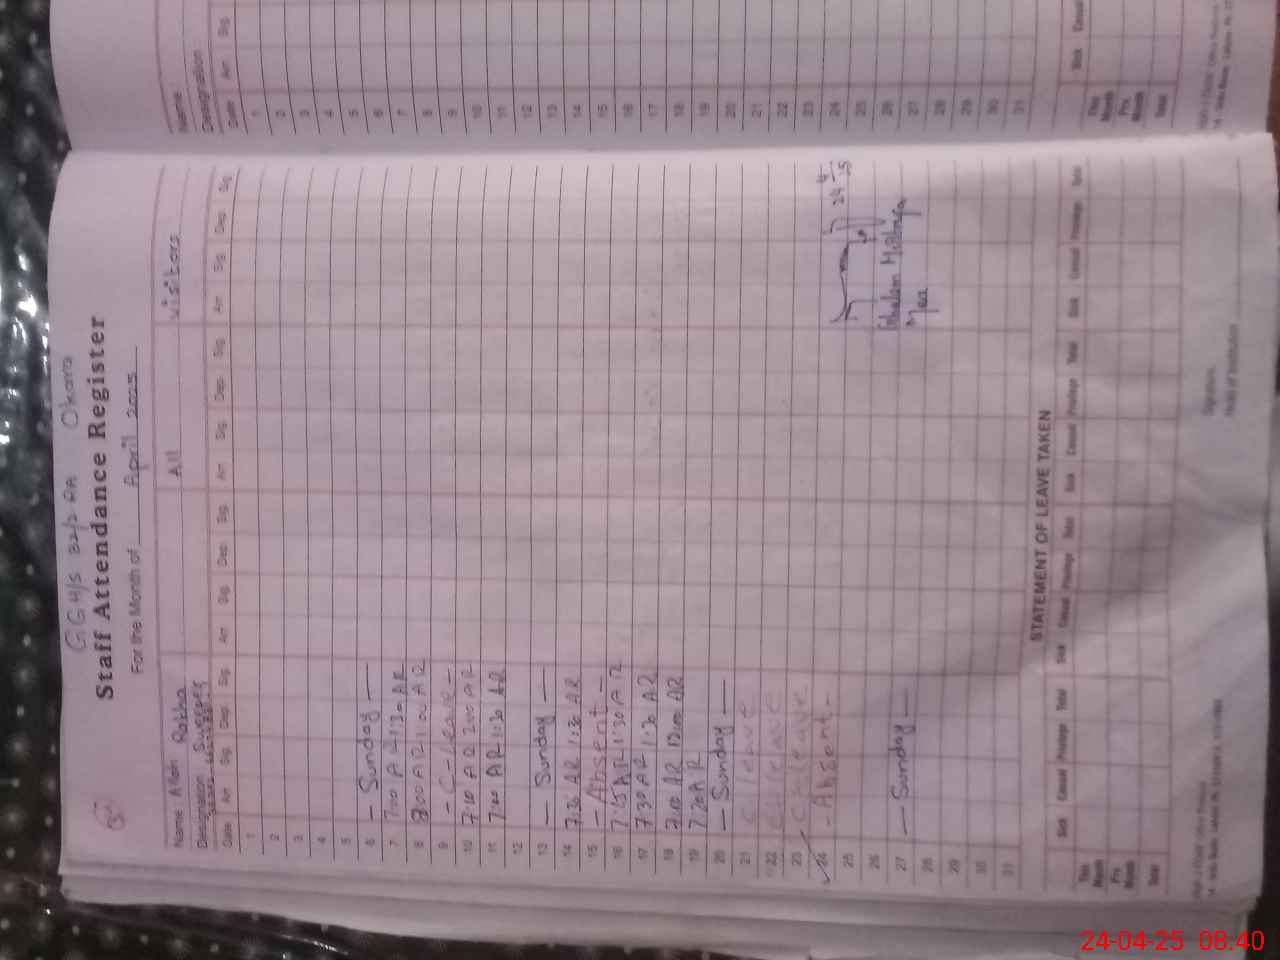 GGH/S 32/2 RA Okara
Staff Attendance Register
For the Month of April 2025
Name Allah Rakha All Visitors
Designation Sweeper
Date Arr. Sig. Dep. Sig. Arr. Sig. Dep. Sig. Arr. Sig. Dep. Sig. Arr. Sig. Dep. Sig.
1
2
3
4
5
6 — Sunday —
7 7:00 AR 1:30 AR
8 8:00 AR 1:00 AR
9 - C-leave -
10 7:10 AR 2:00 AR
11 7:00 AR 1:30 AR
12
13 — Sunday —
14 7:30 AR 1:30 AR
15 - Absent -
16 7:15 AR 1:30 AR
17 7:30 AR 1:30 AR
18 7:10 AR 12:00 AR
19 7:20 AR
20 — Sunday —
21 C/leave
22 C/leave
23 C/leave
24 - Absent - 24/4
25
26 Ghulam
27 — Sunday —
28
29
30
31
STATEMENT OF LEAVE TAKEN
Sick Casual Privilege Total Sick Casual Privilege Total Sick Casual Privilege Total Sick Casual Privilege Total
This Month
Pre. Month
Total
Signature
Head of Institution
Name
Designation
Date Arr. Sig.
1
2
3
4
5
6
7
8
9
10
11
12
13
14
15
16
17
18
19
20
21
22
23
24
25
26
27
28
29
30
31
Sick Casual
This Month
Pre. Month
Total
24-04-25 08:40